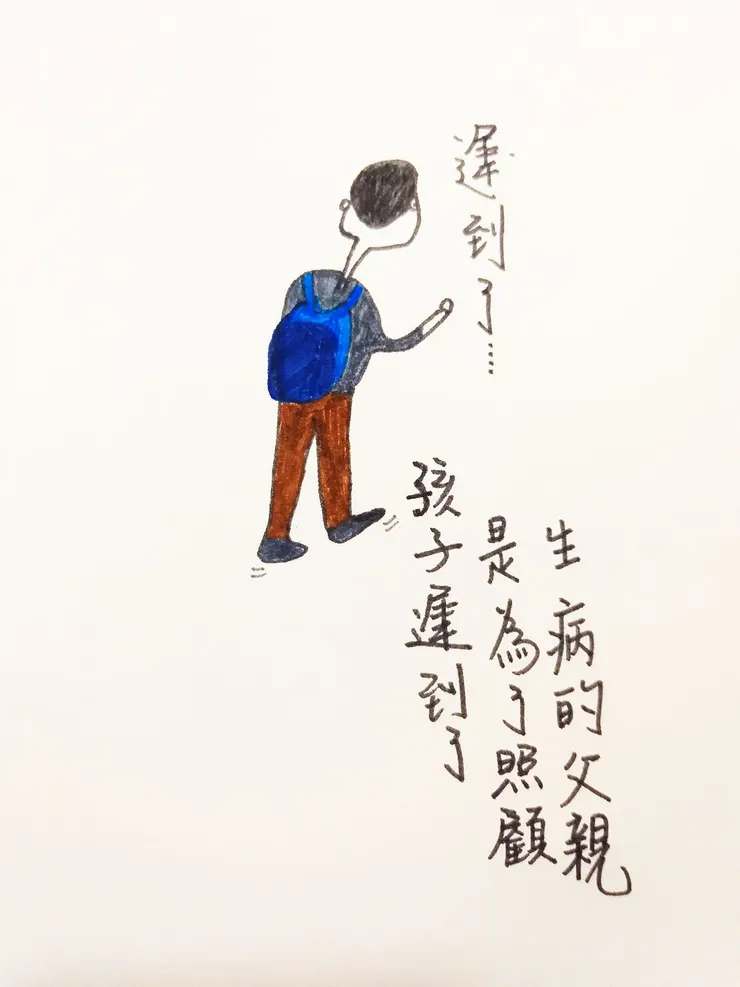 遲到了……
孩子遲到了
是為了照顧
生病的父親